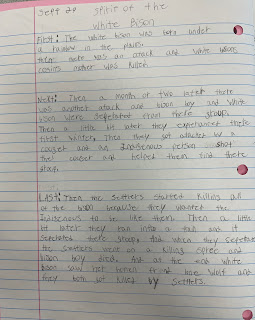 Sept 29 Spirit of the
White Bison
First: The white bison was born under
a rainbow in the plains.
Then there was an attack and white bison
mother was killed.
Next: Then a month or two later there
was another attack and bison boy and white
bison were seperated from there group.
Then a little bit later they experienced there
first winter. Then they got attacked by a
cougar and an Indigenous person shot
the cougar and helped them find there
group.
LAST: Then the settlers started killing all
of the bison because they wanted the
Indigenous to be like them. Then a little
bit later they ran into a train and it
seperated there group. And when they seperated
the settlers went on a killing spree and
bison boy died. And at the end white
bison saw her friend lone wolf and
they both got killed by settlers.